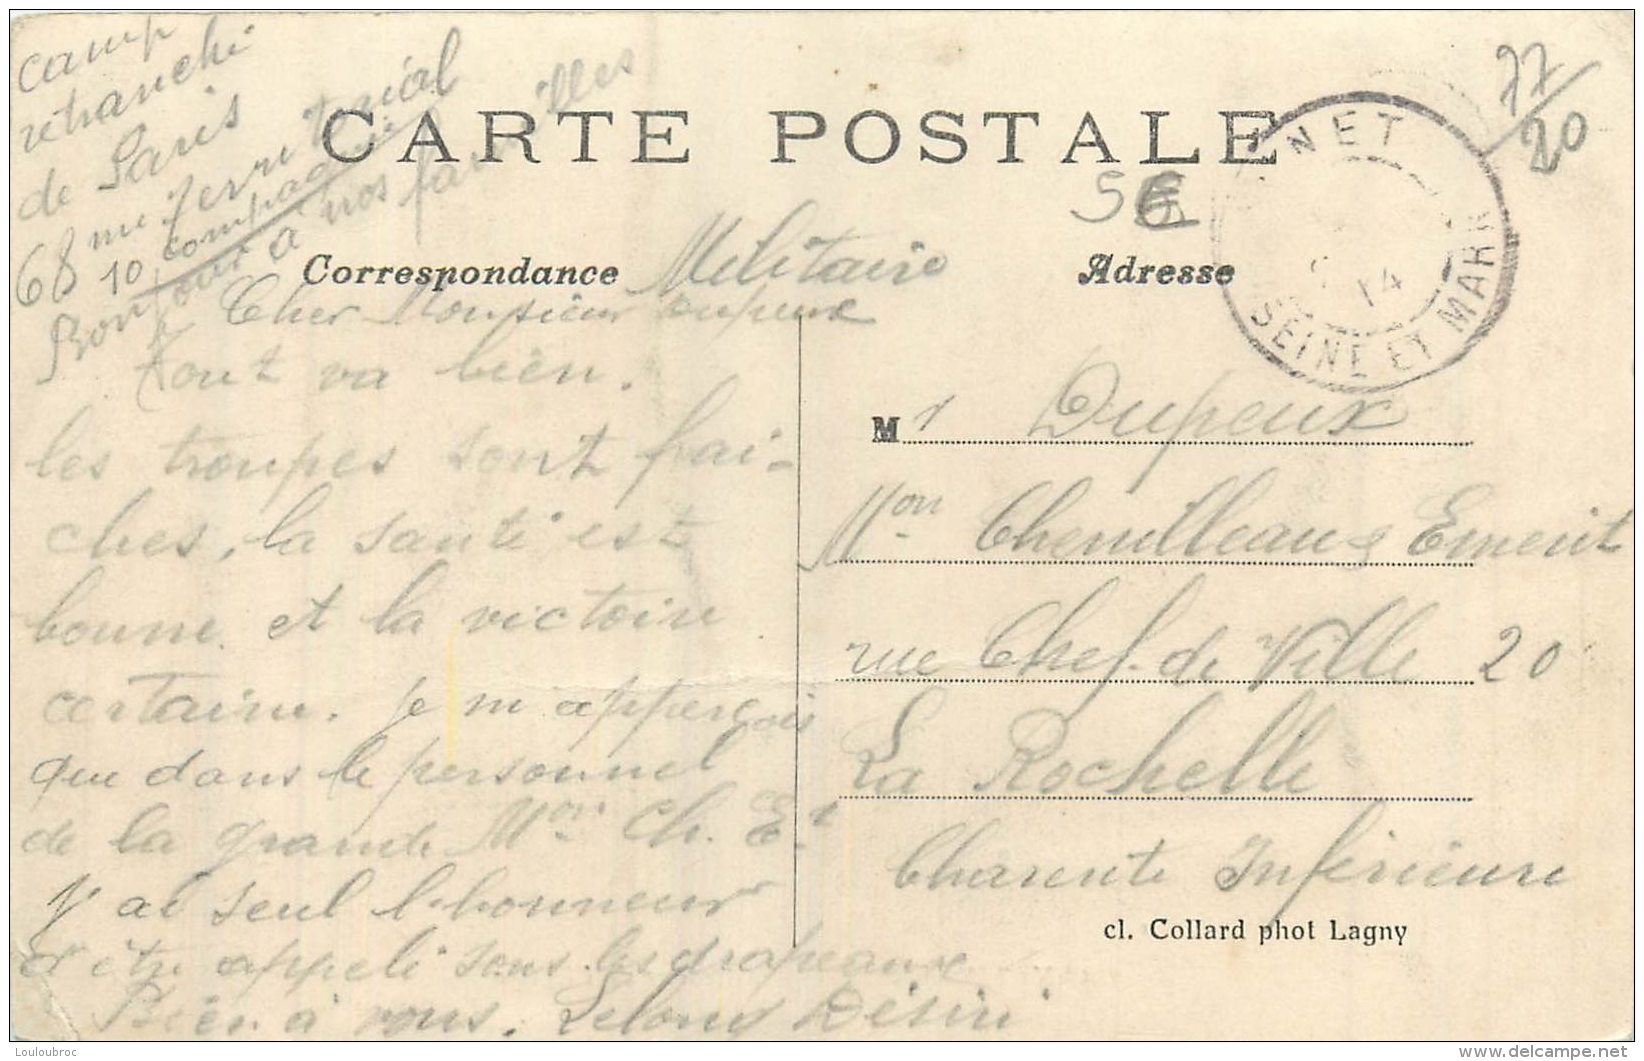 camp
retranché
de Paris
68 me territorial
10 compagnie
Bonjour à nos familles
CARTE POSTALE
Correspondance
Militaire
Adresse
NET
14
SEINE ET MARN
77/20
5€
Cher Monsieur Dupeux
Tout va bien.
les troupes sont frai-
ches, la santé est
bonne et la victoire
certaine. je m apperçois
que dans le personnel
de la grande Mon Ch. Et
j'ai seul l'honneur
d'être appelé sous les drapeaux
Bien à vous. Désiré
Mr Dupeux
Mon Chenilleaux Emerit
rue Chef. de Ville 20
La Rochelle
Charente Inférieure
cl. Collard phot Lagny
Louloubroc
delcampe.net